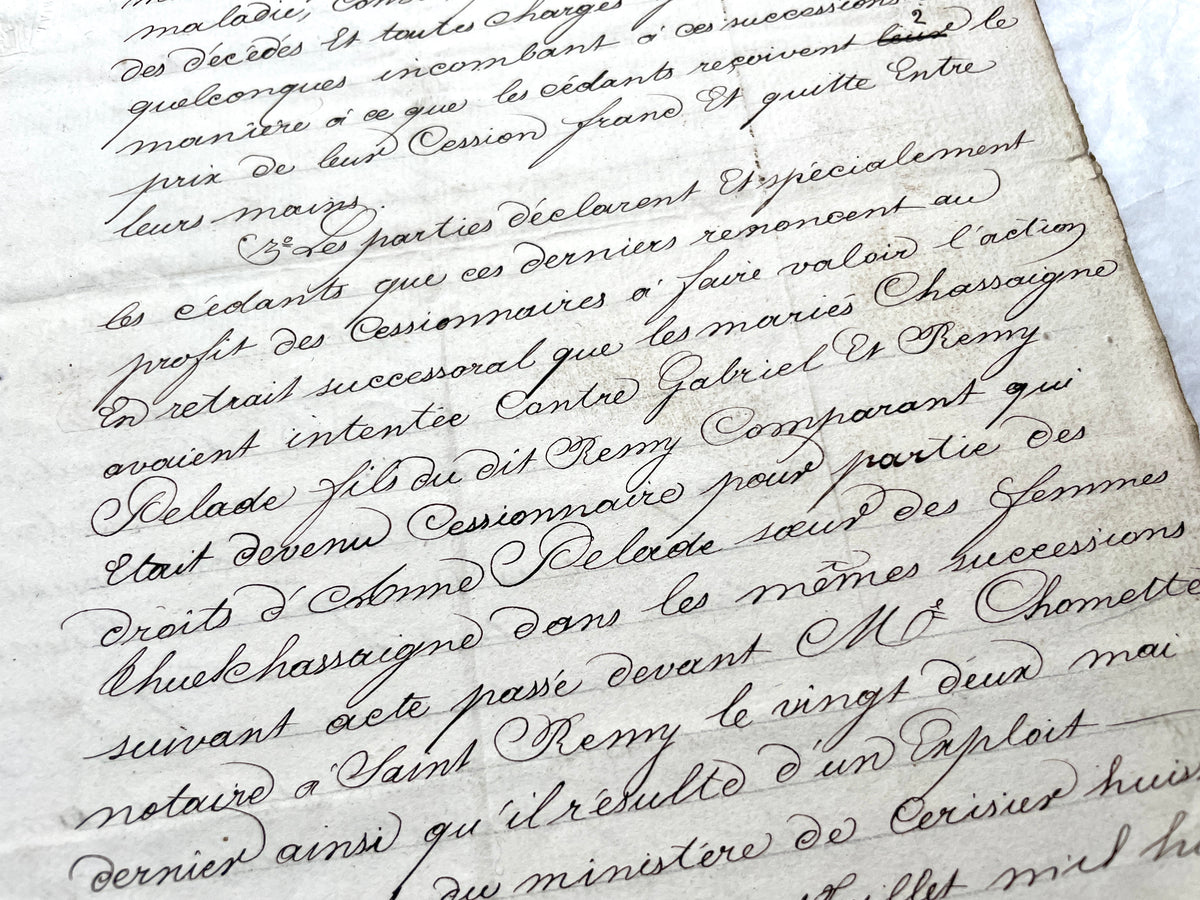 maladie,
des décédés Et toutes charges
quelconques incombant à ces successions
manière à ce que les cédants reçoivent le
prix de leur Cession franc Et quitte Entre
leurs mains.
3º Les parties déclarent Et spécialement
les cédants que ces derniers renoncent au
profit des Cessionnaires à faire valoir l'action
En retrait successoral que les mariés Chassaigne
avaient intentée Contre Gabriel Et Remy
Pelade fils du dit Remy Comparant qui
Etait devenu Cessionnaire pour partie des
droits d'Anne Pelade sœur des femmes
Chassaigne dans les mêmes successions
suivant acte passé devant Me Chomette
notaire à Saint Remy le vingt deux mai
dernier ainsi qu'il résulte d'un Exploit
du ministère de Cerisier
mil